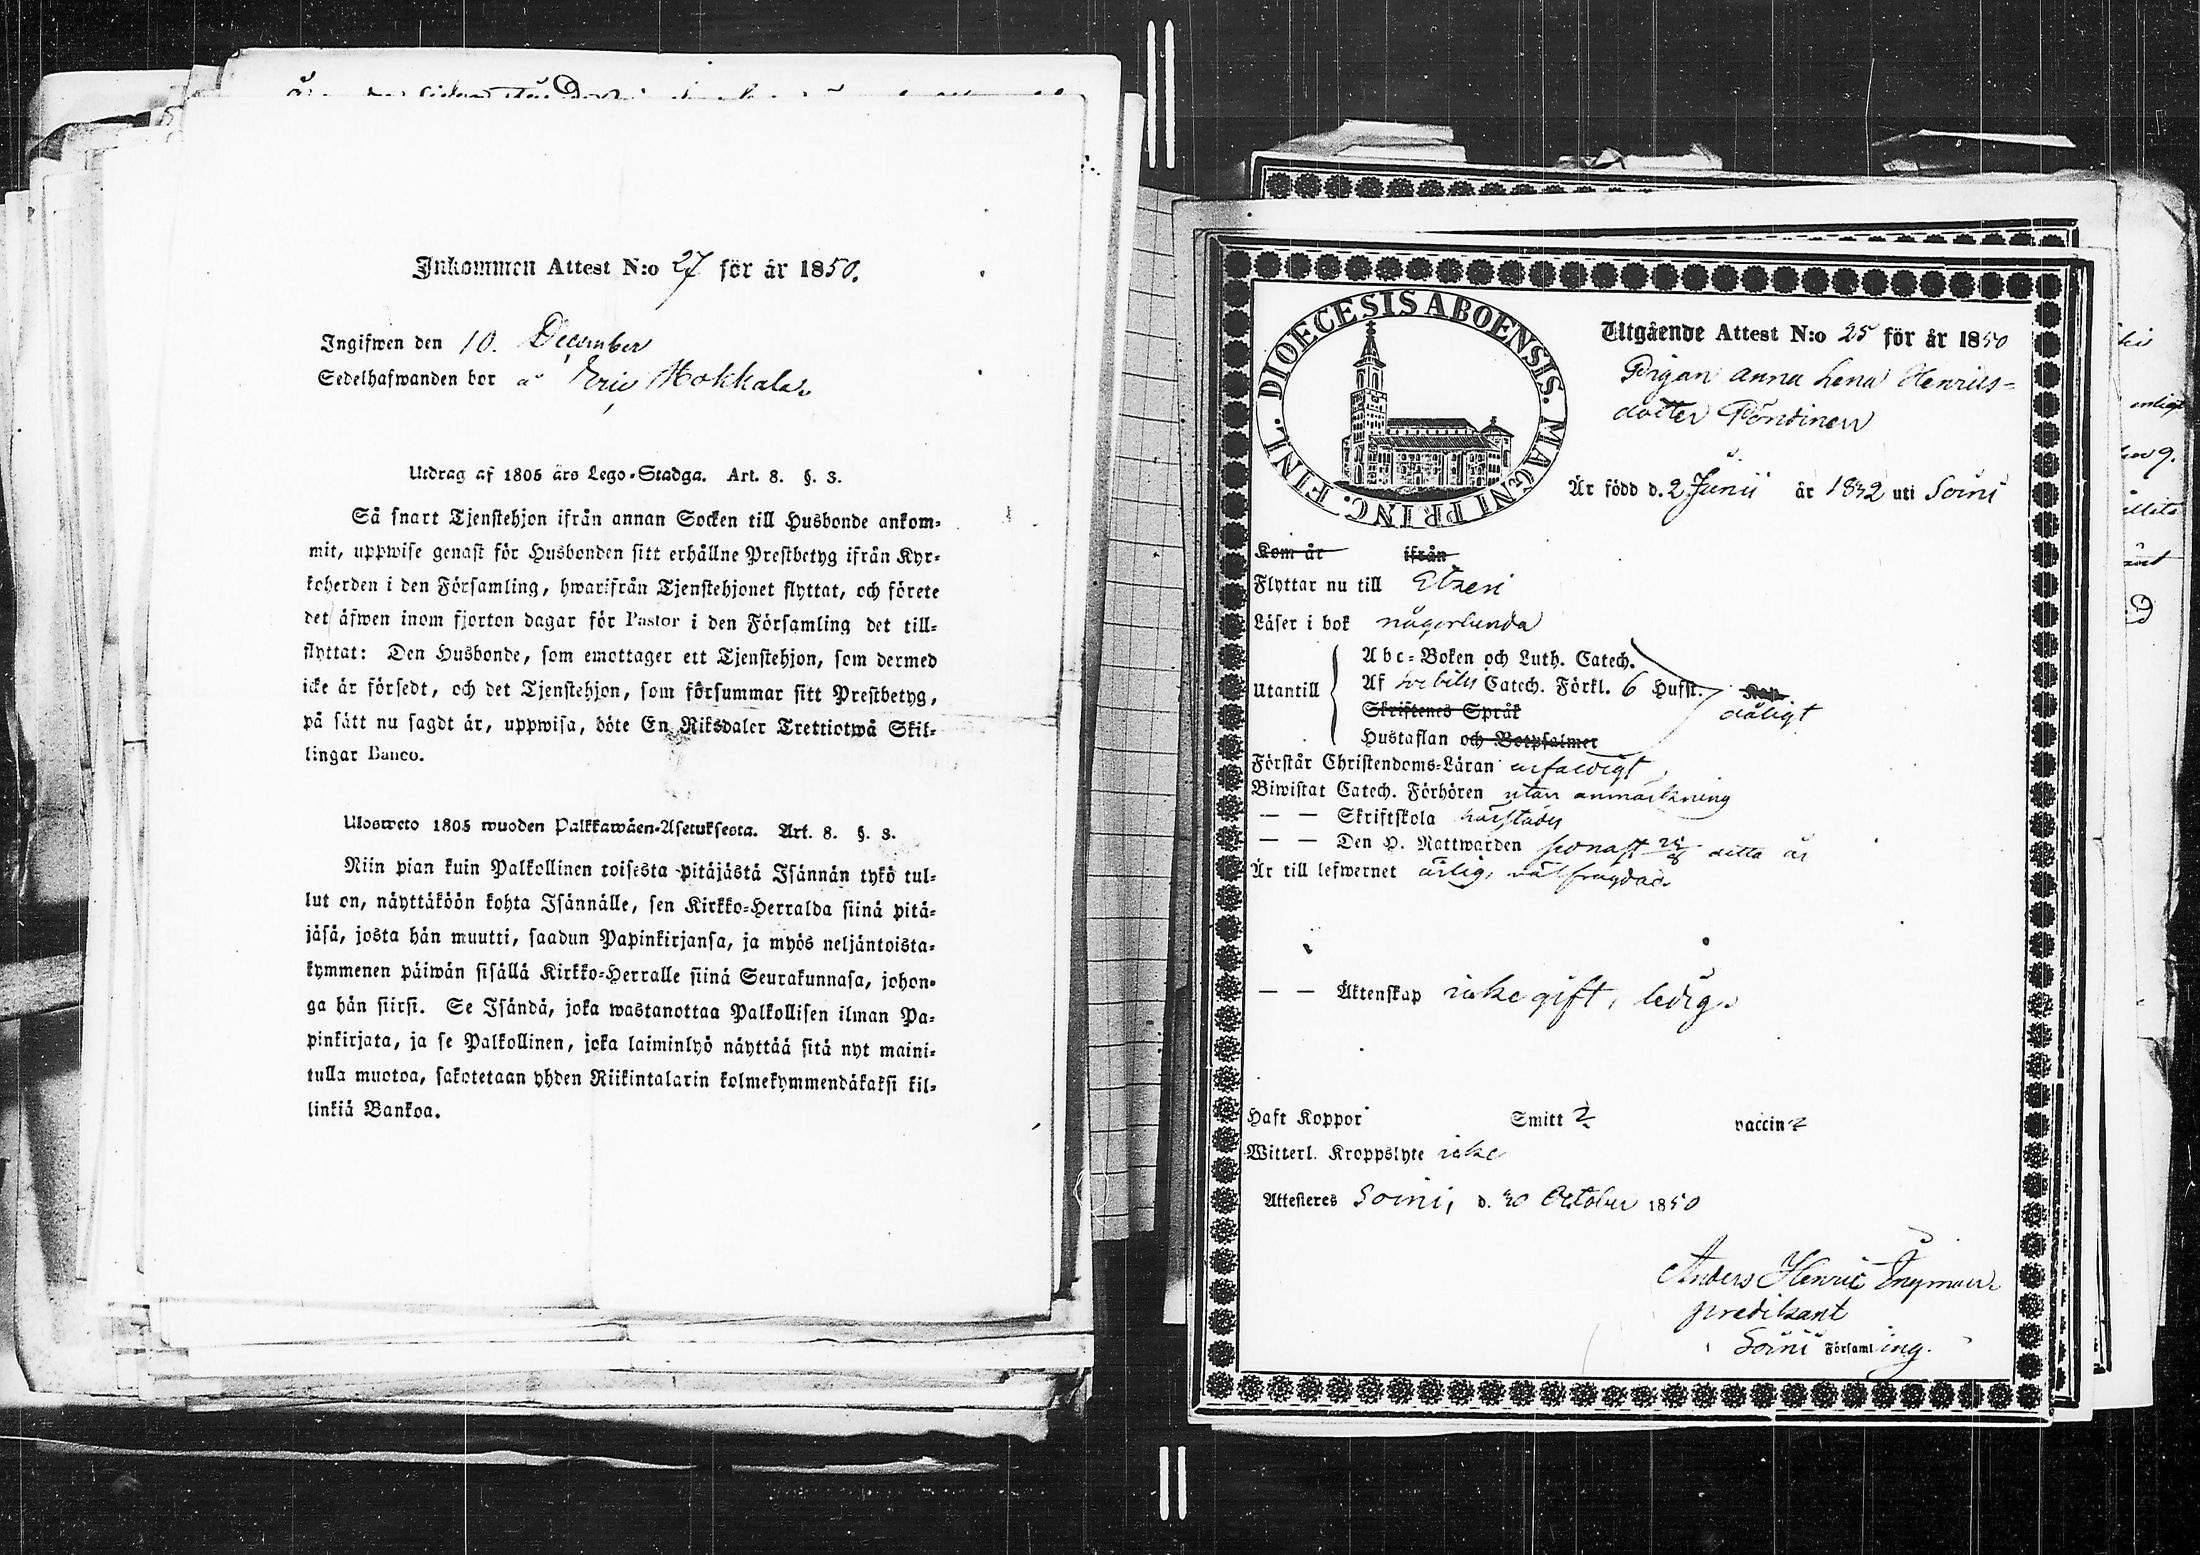 Inkommen Attest N:o 27 för år 1850.
Ingifwen den 10. December
Sedelhafwanden bor å Eric Hokkala
Utdrag af 1805 års Lego-Stadga. Art. 8. §. 3.
Så snart Tjenstehjon ifrån annan Socken till Husbonde ankom-
mit, uppwise genast för Husbonden sitt erhållne Prestbetyg ifrån Kyr-
koherden i den Församling, hwarifrån Tjenstehjonet flyttat, och förete
det äfwen inom fjorton dagar för Pastor i den Församling det till-
flyttat: Den Husbonde, som emottager ett Tjenstehjon, som dermed
icke är försedt, och det Tjenstehjon, som försummar sitt Prestbetyg,
på sätt nu sagdt är, uppwisa, böte En Riksdaler Trettiotwå Skil-
lingar Banco.
Ulosweto 1805 wuoden Palkkawäen-Asetuksesta. Art. 8. §. 3.
Niin pian kuin Palkollinen toisesta pitäjästä Isännän tykö tul-
lut on, näyttäköön kohta Isännälle, sen Kirkko-Herralda siinä pitä-
jäsä, josta hän muutti, saadun Papinkirjansa, ja myös neljäntoista-
kymmenen päiwän sisällä Kirkko-Herralle siinä Seurakunnasa, johon-
ga hän siirsi. Se Isändä, joka wastanottaa Palkollisen ilman Pa-
pinkirjata, ja se Palkollinen, joka laiminlyö näyttää sitä nyt maini-
tulla muotoa, sakotetaan yhden Riikintalarin kolmekymmendäkaksi kil-
linkiä Bankoa.
DIOECESIS ABOENSIS. MAGNI PRINC. FINL.
Utgående Attest N:o 25 för år 1850
Pigan Anna Lena Henrics-
dotter Pöndinen
Är född d. 2 Junii år 1832 uti Soini
Kom år ifrån
Flyttar nu till Etseri
Läser i bok någorlunda
Utantill
Abc-Boken och Luth. Catech.
Af Svebilii Catech. Förkl. 6 Hufst.
Skriftenes Språk
Hustaflan och Botpsalmer
dåligt
Förstår Christendoms-Läran enfaldigt
Biwistat Catech. Förhören utan anmärkning
— — Skriftskola härstädes
— — Den H. Nattwarden senast detta år
Är till lefwernet ärlig, välfrägdad
— — Äktenskap icke gift, ledig
Haft Koppor Smitt ? vaccin ?
Witterl. Kroppslyte icke
Attesteres Soini, d. 30 October 1850
Anders Henric Ingman
predikant
Soini Församling.